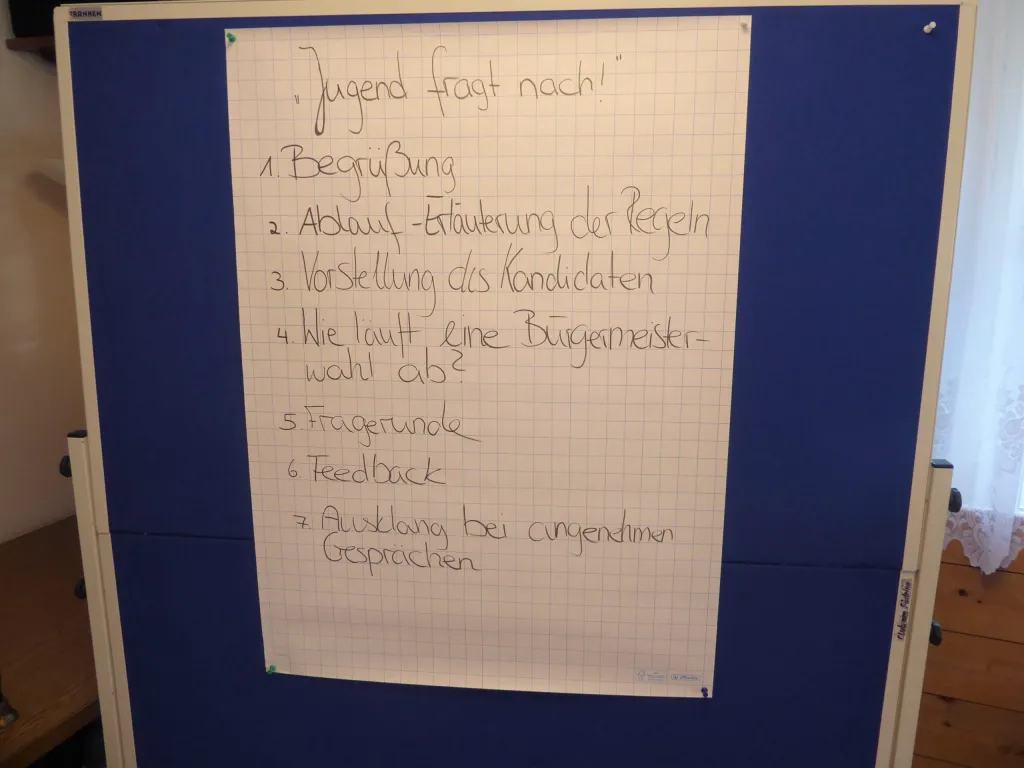 FRANKEN
„Jugend fragt nach!"
1. Begrüßung
2. Ablauf - Erläuterung der Regeln
3. Vorstellung des Kandidaten
4. Wie läuft eine Bürgermeister-
wahl ab?
5. Fragerunde
6. Feedback
7. Ausklang bei angenehmen
Gesprächen